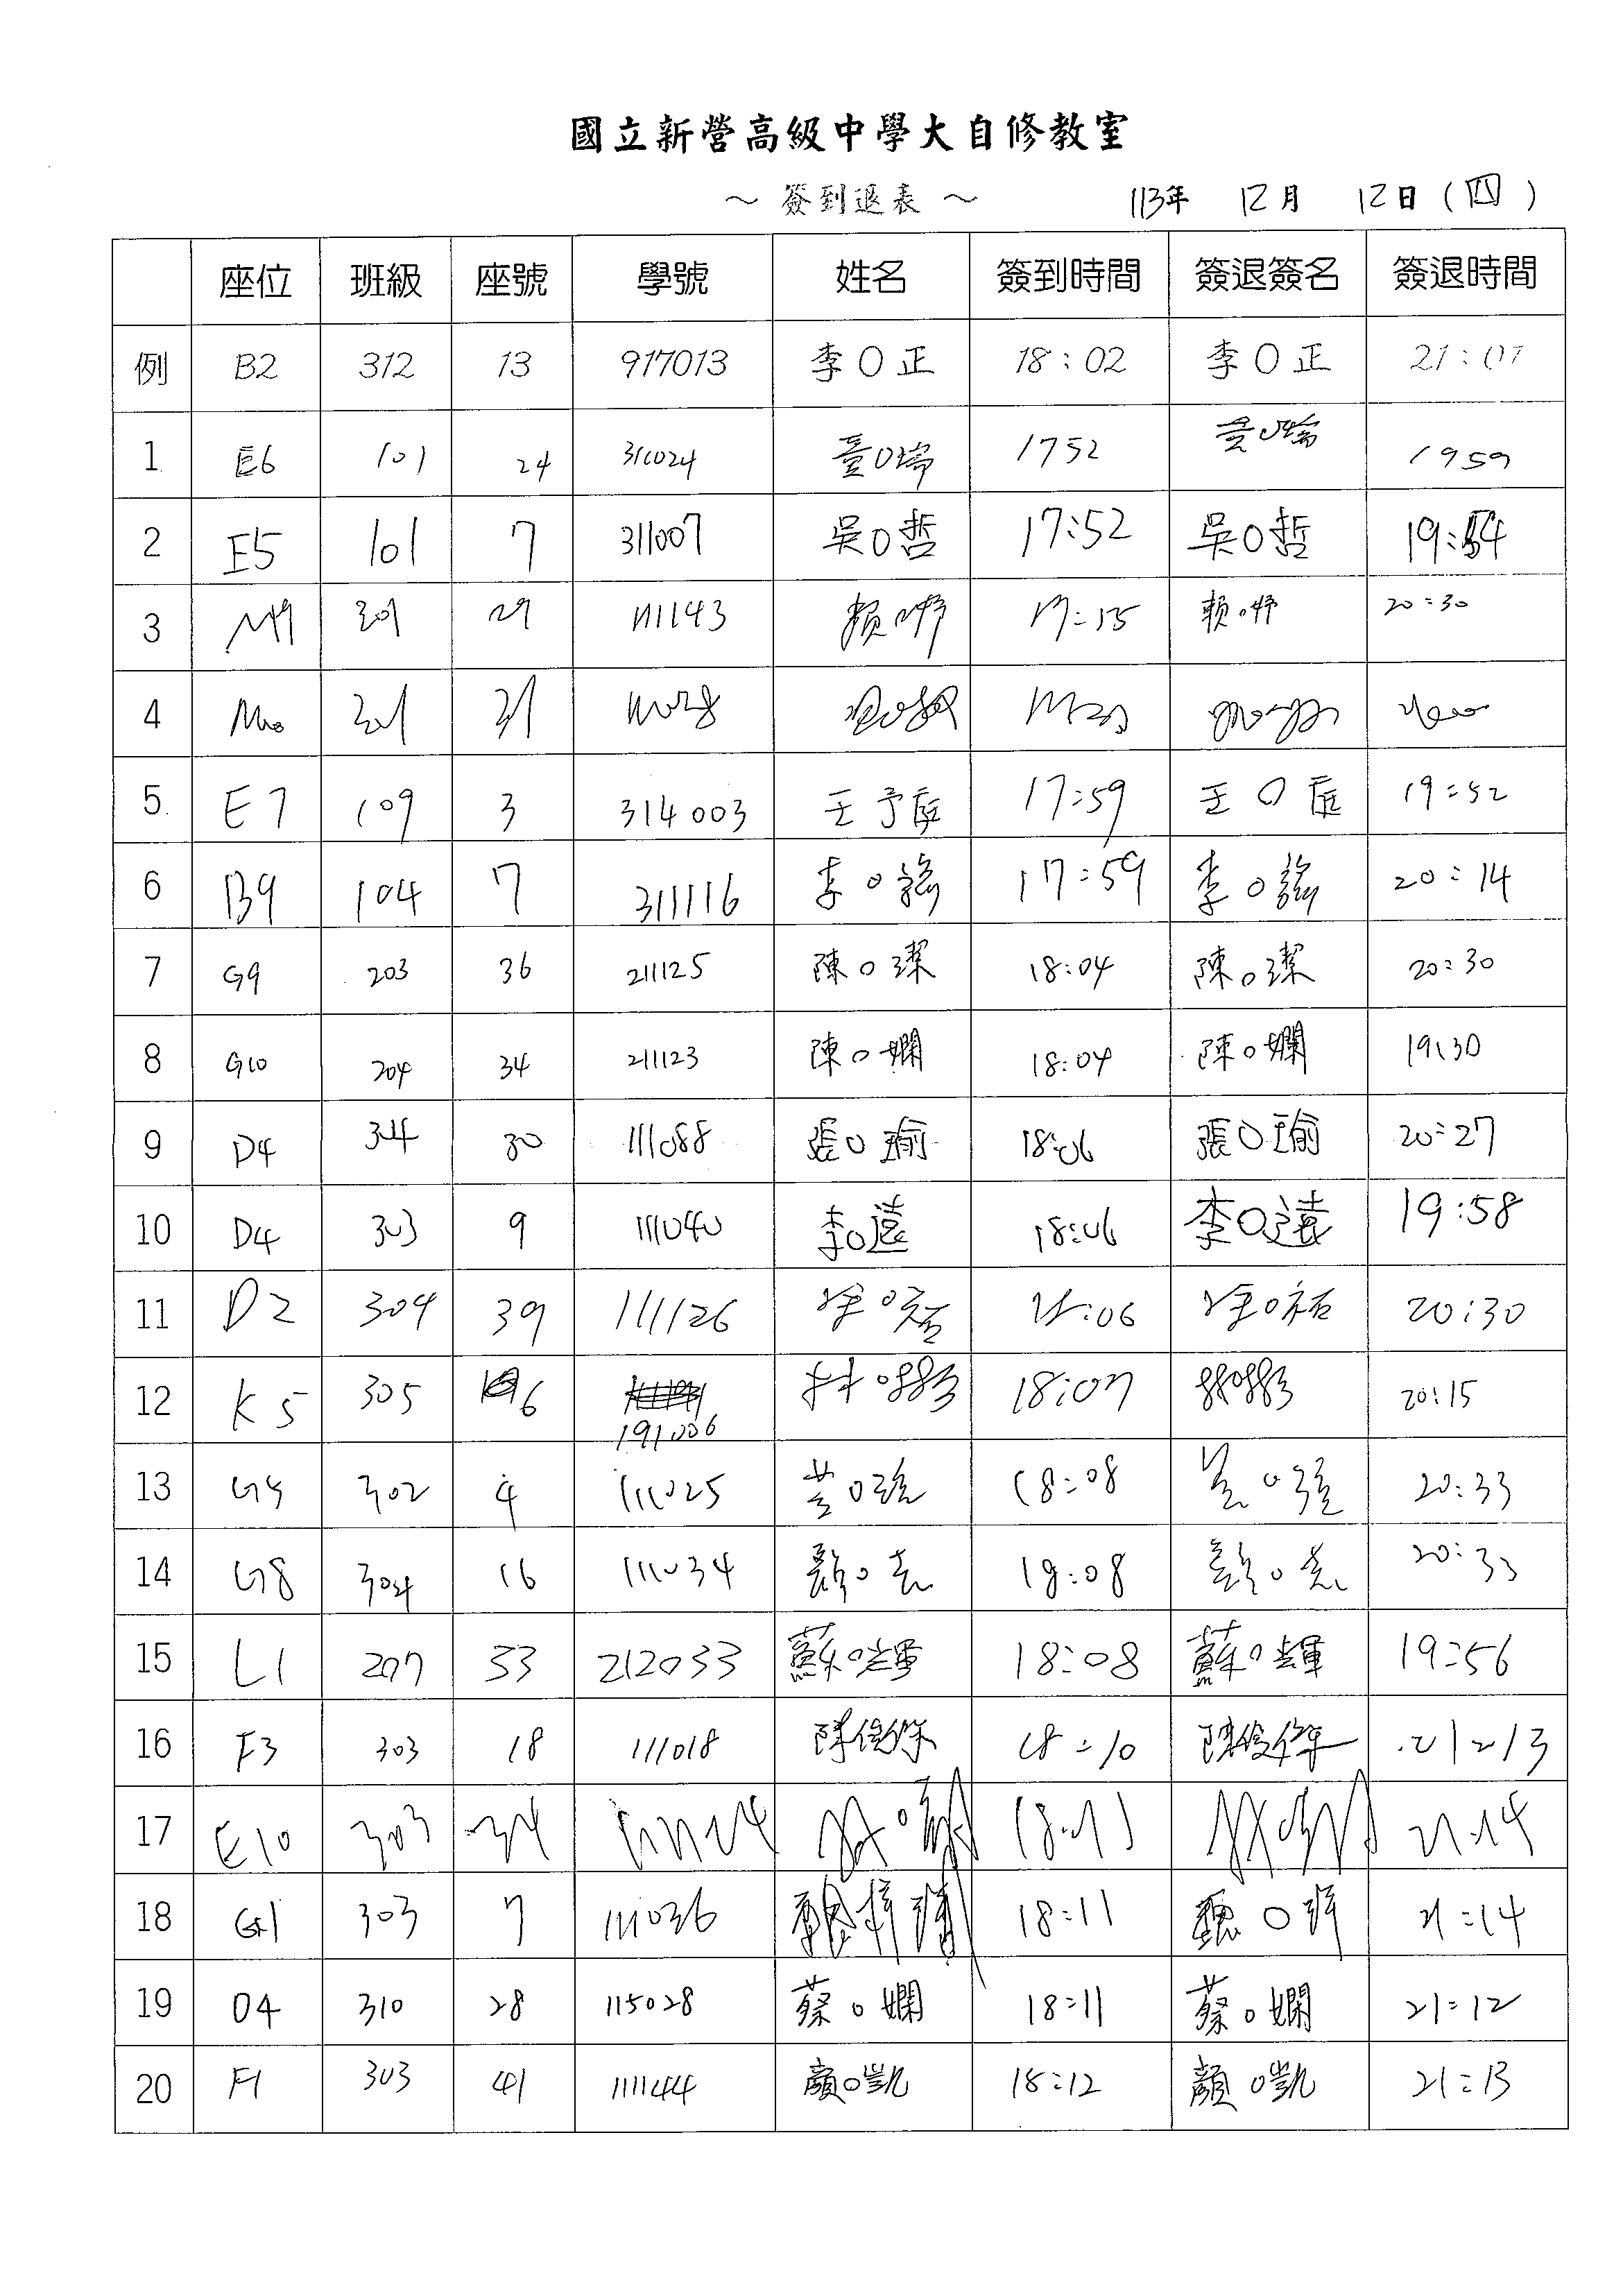 國立新營高級中學大自修教室
～ 簽到退表 ～ 113年 12月 12日(四)
座位 班級 座號 學號 姓名 簽到時間 簽退簽名 簽退時間
例 B2 312 13 917013 李O正 18:02 李O正 21:07
1 E6 101 24 311024 1752 1959
2 E5 101 7 311007 吳O哲 17:52 吳O哲 19:54
3 M9 301 29 111143 賴O妤 17:15 賴O妤 20:30
4 M10 301 31
5 E7 109 3 314003 王予庭 17:59 王O庭 19:52
6 B9 104 7 311116 李O 17:59 李O 20:14
7 G9 203 36 211125 陳O潔 18:04 陳O潔 20:30
8 G10 204 34 211123 陳O嫻 18:04 陳O嫻 19:30
9 D4 304 30 111088 張O瑜 18:06 張O瑜 20:27
10 D4 303 9 111040 李O遠 18:06 李O遠 19:58
11 D2 304 39 111126 :06 20:30
12 K5 305 6 191006 18:07 20:15
13 G5 302 4 111025 18:08 20:33
14 G8 304 16 111034 顏O志 18:08 20:33
15 L1 207 33 212033 蘇O輝 18:08 蘇O輝 19:56
16 F3 303 18 111018 陳俊 18:10 陳俊 21:13
17 E10 303 34 18:11 21:14
18 G1 303 7 111036 18:11 魏O 21:14
19 O4 310 28 115028 蔡O嫻 18:11 蔡O嫻 21:12
20 F1 303 41 111144 顏O凱 18:12 顏O凱 21:13